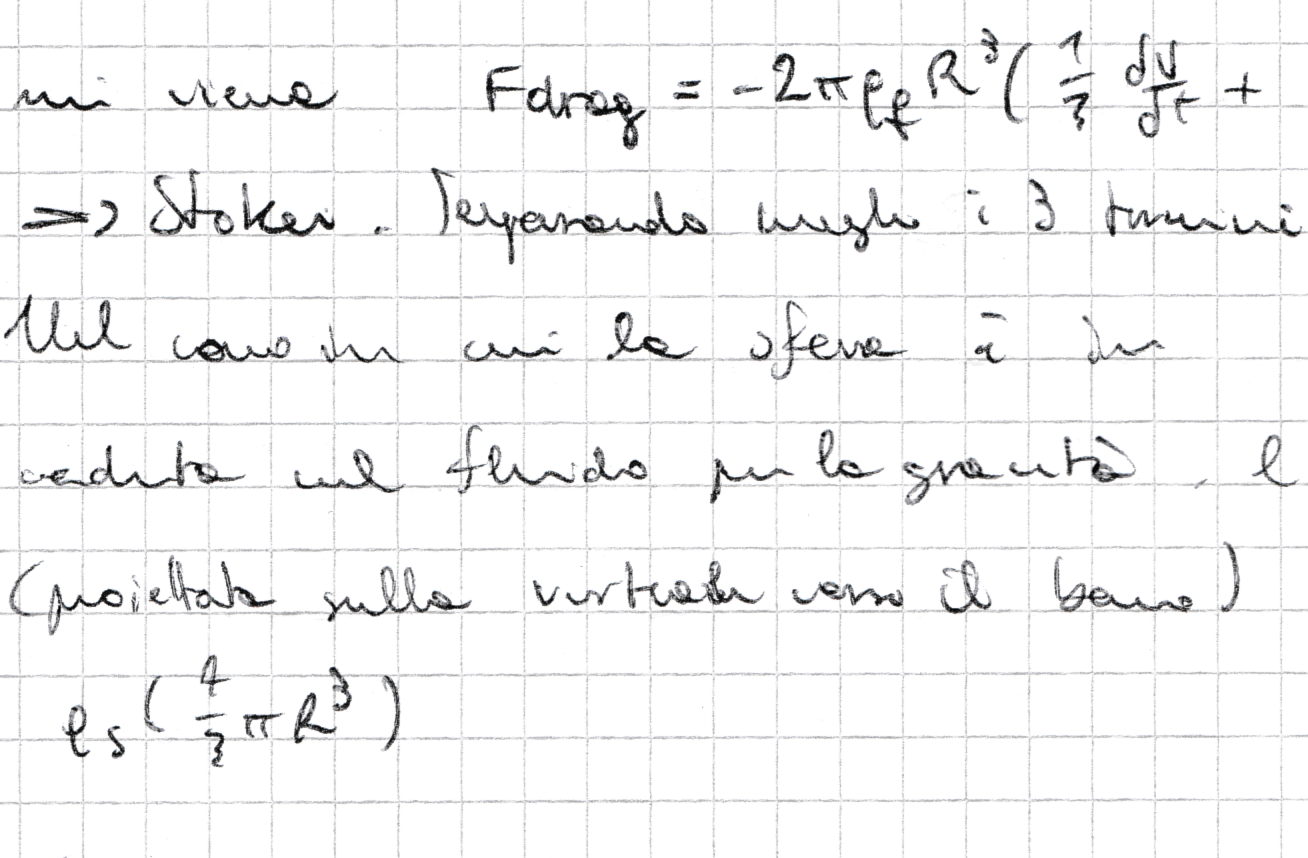 mi viene Fdrag = -2πρ_f R³( 1/3 dV/dt +
=> Stokes. Separando meglio i 3 termini
Nel caso in cui la sfera è in
caduta nel fluido per la gravità, l
(proiettata sulla verticale verso il basso)
ρs( 4/3 πR³)